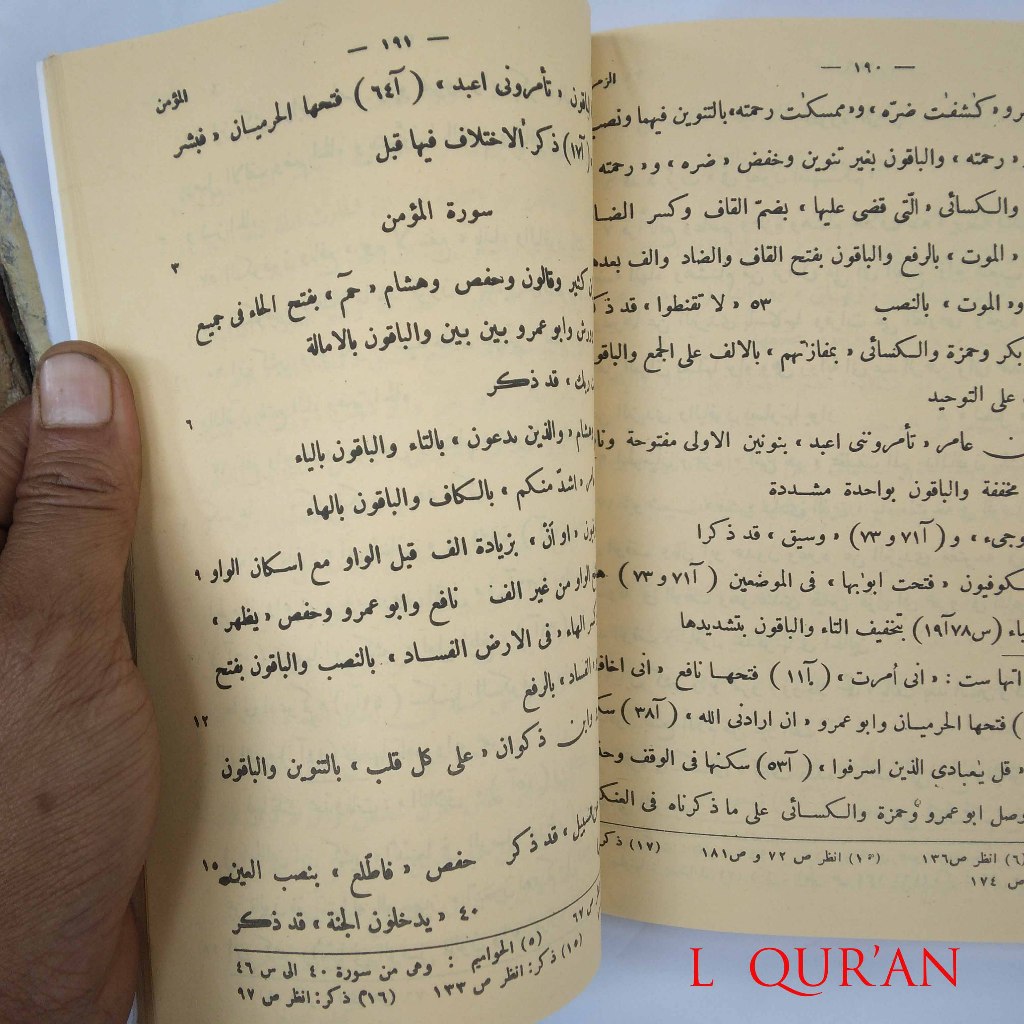 — ١٩٠ —
« كٰشفٰت ضرّه » و« ممسكٰت رحمته » بالتنوين فيهما ونصب
« رحمته » والباقون بغير تنوين وخفض « ضره » و« رحمته
والكسائى « الّتى قضى عليها » بضمّ القاف وكسر الضا
« الموت » بالرفع والباقون بفتح القاف والضاد والف بعدها
و« الموت » بالنصب ٥٣ « لا تقنطوا » قد ذ
بكر وحمزة والكسائى « بمفازتهم » بالالف على الجمع والباقو
على التوحيد
عامر « تأمروننى اعبد » بنونين الاولى مفتوحة
مخففة والباقون بواحدة مشددة
وجىء » و ( آ٧١ و ٧٣ ) « وسيق » قد ذكرا
« فتحت ابوابها » فى الموضعين ( آ٧١ و ٧٣ )
(س٧٨آ١٩) بتخفيف التاء والباقون بتشديدها
ست : « انى أمرت » ( آ١١ ) فتحها نافع « انى اخاف
فتحها الحرميان وابو عمرو « ان ارادنى الله » ( آ٣٨ )
« قل يٰعبادي الذين اسرفوا » ( آ٥٣ ) سكنها فى الوقف
ابو عمرو وحمزة والكسائى على ما ذكرناه فى
(٦) انظر ص١٣٦ (١٥) انظر ص ٧٢ و ص١٨١ (١٧) ذكر
ص ١٧٤
— ١٩١ —
المؤمن
« تأمرونى اعبد » ( آ٦٤ ) فتحها الحرميان « فبشر
(آ١٧) ذكر الاختلاف فيها قبل
سورة المؤمن
٣
كثير وقالون وحفص وهشام « حمٓ » بفتح الحاء فى جميع
وابو عمرو بين بين والباقون بالامالة
ربك » قد ذكر
٦
« والذين يدعون » بالتاء والباقون بالياء
« اشدّ منكم » بالكاف والباقون بالهاء
« او أنْ » بزيادة الف قبل الواو مع اسكان الواو ٩
الواو من غير الف نافع وابو عمرو وحفص « يظهر »
الهاء « فى الارض الفساد » بالنصب والباقون بفتح
الفساد » بالرفع
١٢
ذكوان « على كل قلب » بالتنوين والباقون
السبيل » قد ذكر حفص « فاطّلع » بنصب العين ١٥
٤٠ « يدخلون الجنة » قد ذكر
(٥) الحواميم : وهى من سورة ٤٠ الى س ٤٦
(١٥) ذكر: انظر ص ١٣٣ (١٦) ذكر: انظر ص ٩٧
L QUR'AN